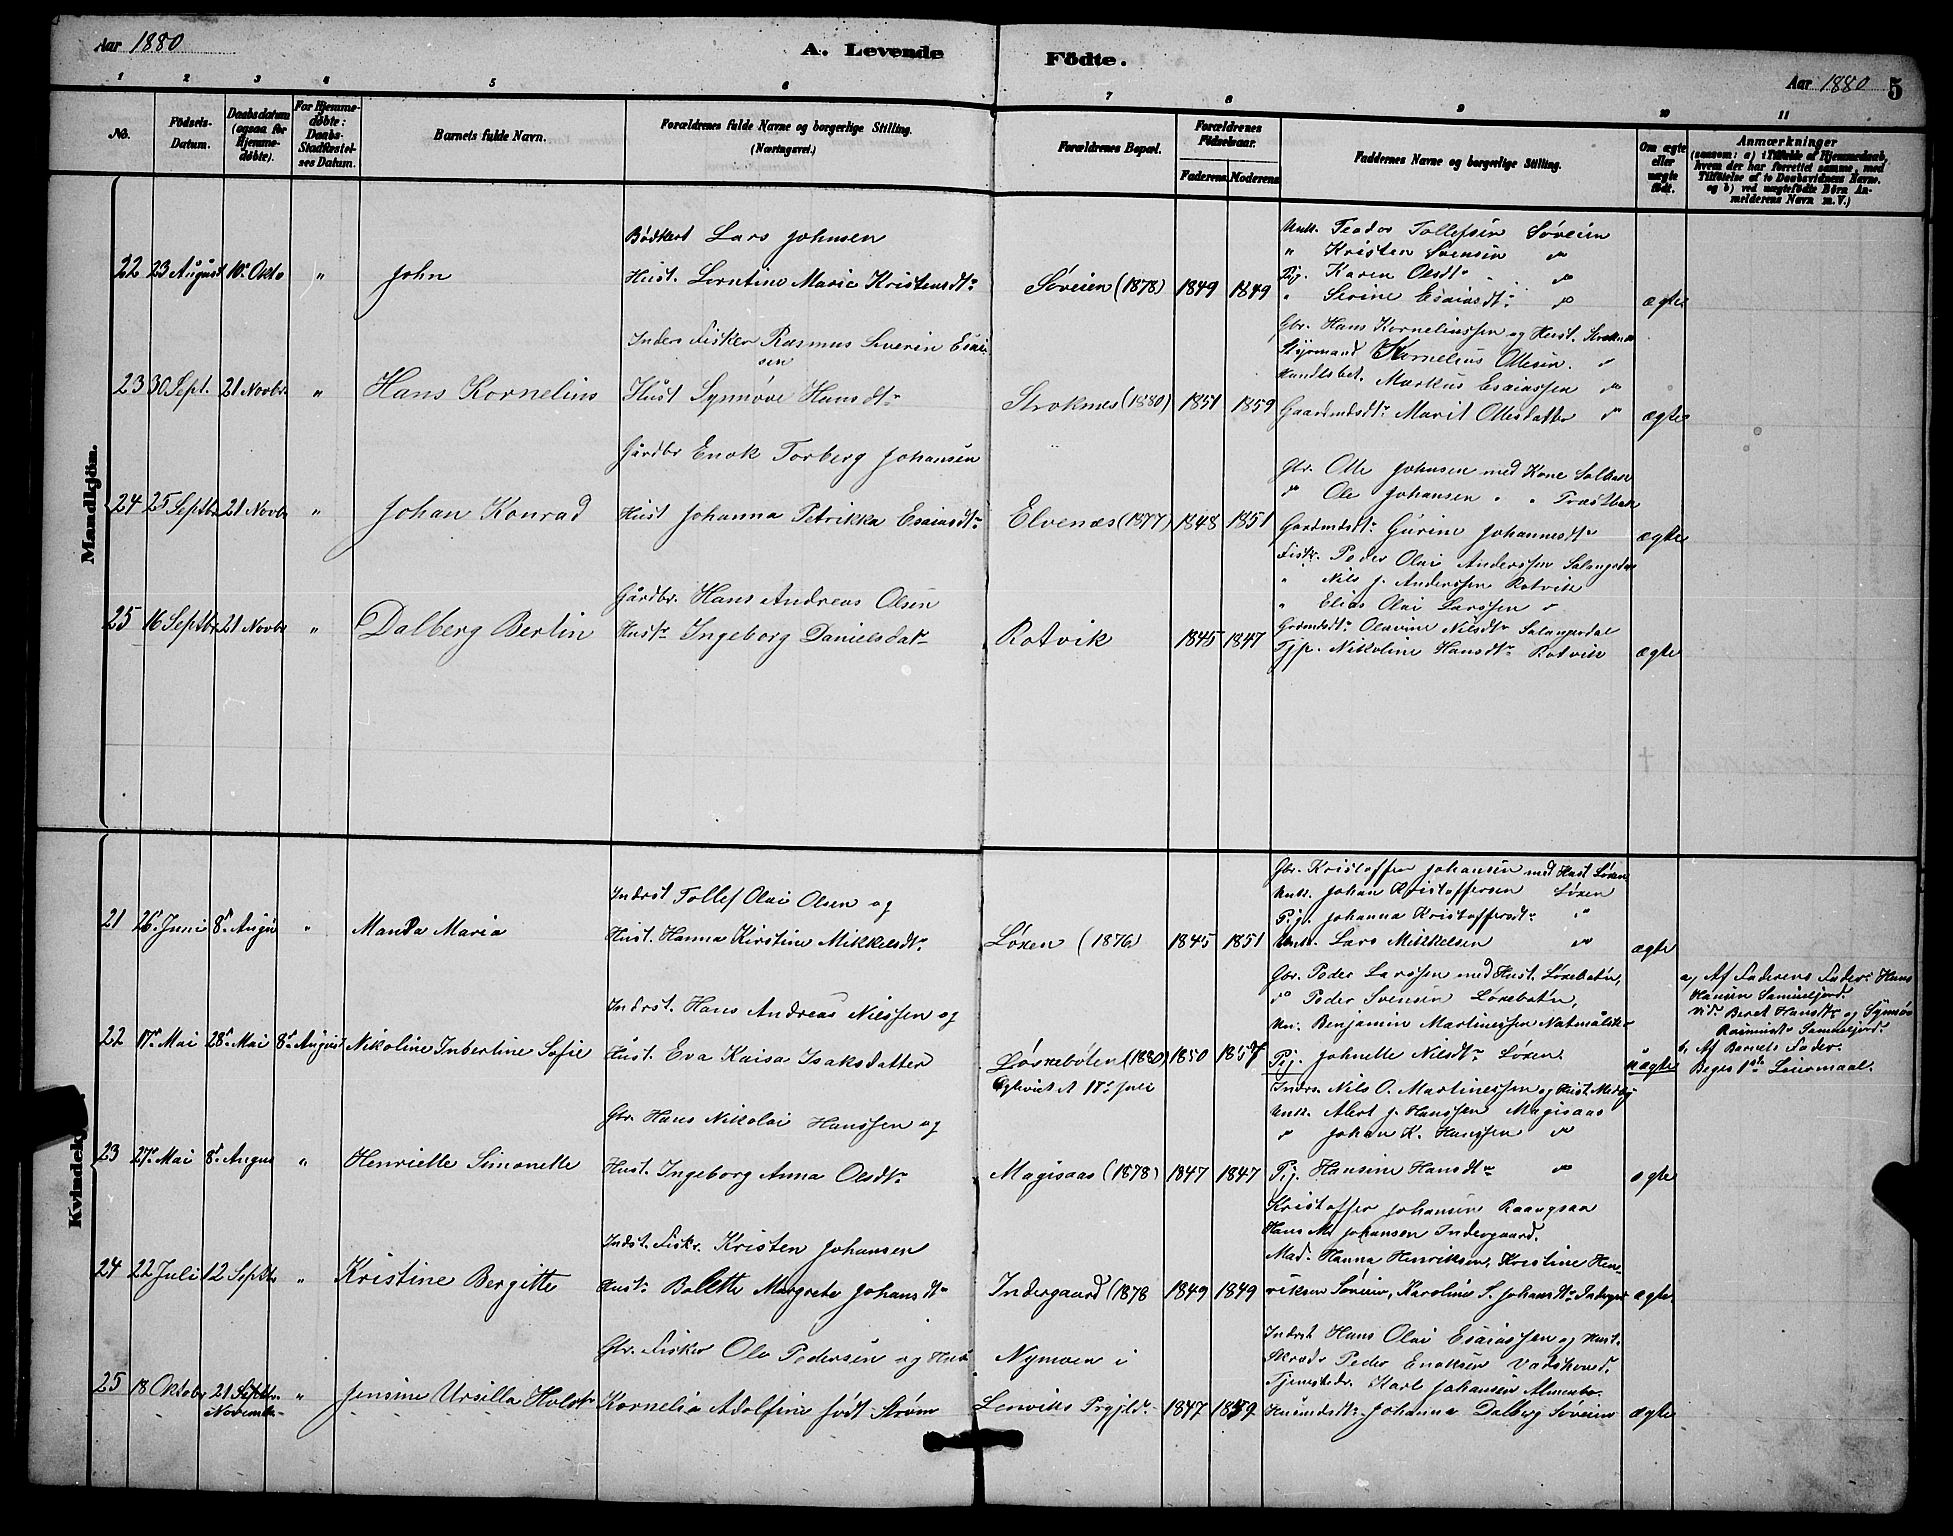 Aar 1880
A. Levende Födte.
Aar 1880 5
1 2 3 4 5 6 7 8 9 10 11
No.
Födsels-
Datum.
Daabsdatum
(ogsaa for
Hjemme-
döbte).
For Hjemme-
döbte:
Daabs-
Stadfæstel-
ses Datum.
Barnets fulde Navn.
Forældrenes fulde Navne og borgerlige Stilling.
(Næringsvei.)
Forældrenes Bopæl.
Forældrenes
Födselsaar.
Faderens. Moderens.
Faddernes Navne og borgerlige Stilling.
Om ægte
eller
uægte
født.
Anmærkninger
(saasom: a) i Tilfælde af Hjemmedaab,
hvem der har forrettet samme, med
Tilföielse af to Daabsvidners Navne.
og b) ved uægtefödte Börn An-
melderens Navn m. V.)
Mandkjön.
22 23 August 10. Okto „ John
Bødkert Lars Johnsen
Hust. Lorntine Marie Kristensdtr
Søveien (1878) 1849 1849
Unk. Teodor Tollefsen Søveien
" Kristen Svensen do
Pig. Karen Olsdtr do
" Serine Esaiasdtr do
ægte
23 30 Sept. 21 Novbr „ Hans Kornelius
Inders Fisker Rasmus Severin Esai-
sen
Hust Synnøve Hansdtr
Stroknes (1880) 1851 1859
Gbr. Hans Korneliussen og Hust. Stroknes
Styrmand Kornelius Ottesen "
Handlsbet. Markus Esaiassen do
Gaardmdsdtr Marit Ottesdatter do
ægte
24 25 Septbr 21 Novbr „ Johan Konrad
Gårdbr Enok Torberg Johansen
Hust Johanna Petrikka Esaiasdtr
Elvenæs (1877) 1848 1851
Gbr. Otte Johnsen med Kone
do Ole Johansen " "
Gardmdsdtr Gurine Johannesdtr
Fisk. Peder Olai Anderssen Salangsdal
ægte
25 16 Septbr 21 Novbr „ Dalberg Berlin
Gårdbr. Hans Andreas Olsen
Hustr Ingeborg Danielsdatr
Rotvik 1845 1847
" Nils J. Anderssen Rotvik
" Elias Olai Larssen "
Grdmdsdtr Olavine Nilsdtr Salangsdal
Tjp. Nikoline Hansdtr Rotvik
ægte
Kvindek
21 26 Juni 8. Augu „ Manda Maria
Inderst Tollef Olai Olsen og
Hust. Hanna Kirstine Mikkelsdtr
Løxen (1876) 1845 1851
Gbr. Kristoffer Johansen med Hust Løxen
Unk. Johan Kristoffersen Løxen
Pig. Johanna Kristoffersdtr "
Unk. Lars Mikkelsen do
ægte
22 17. Mai 28. Mai 8. August Nikoline Inbertine Sofie
Indrst. Hans Andreas Nilssen og
Hust. Eva Kaisa Isaksdatter
Løxebotn (1880) 1850 1857
Egteviet d 17. Juli
Gbr. Peder Larssen med Hust. Løxebotn,
do Peder Svensen Løxebotn,
Un. Benjamin Martinessen
Pig. Johnette Nilsdtr Løxen
uægte
a, Af Faderens Fader Hans
Hansen
vid. Beret Hansdtr og Synnøv
b, Af Barnets Fader.
Beges 1ste Leiermaal.
23 27. Mai 8. Augus „ Henriette Simonette
Gbr. Hans Nikolai Hanssen og
Hust. Ingeborg Anna Olsdtr
Magisaas (1878) 1847 1847
Indrs. Nils O. Martinessen og Hust. Medby
Unk. Alert J. Hanssen Magisaas
" Johan K. Hanssen do
Pig. Hansine Hansdtr do
ægte
24 22 Juli 12 Septbr „ Kristine Bergitte
Indst. Fiskr. Kristen Johansen
Hustr Bolette Margrete Johansdtr
Indergaard (1878 1849 1849
Kristoffer Johansen
Hans M Johansen Indergaard.
Mad. Hanna Henriksen, Kristine Hen-
riksen Søveien, Karoline S. Johansdtr Indergrd
ægte.
25 18 Oktober 21 Septbr. „ Jensine Ursilla Holst
Novembr.
Gbr. Fisker Ole Pedersen og Hust
Kornelia Adolfine født Strøm
Nymoen i
Lenviks Prgjld. 1847 1859
Indrst Hans Olai Esaiassen og Hust.
Skrædr Peder Enoksen
Tjenestedr. Karl Johansen
Husmdsdtr Johanna Dalberg Søveien
ægte